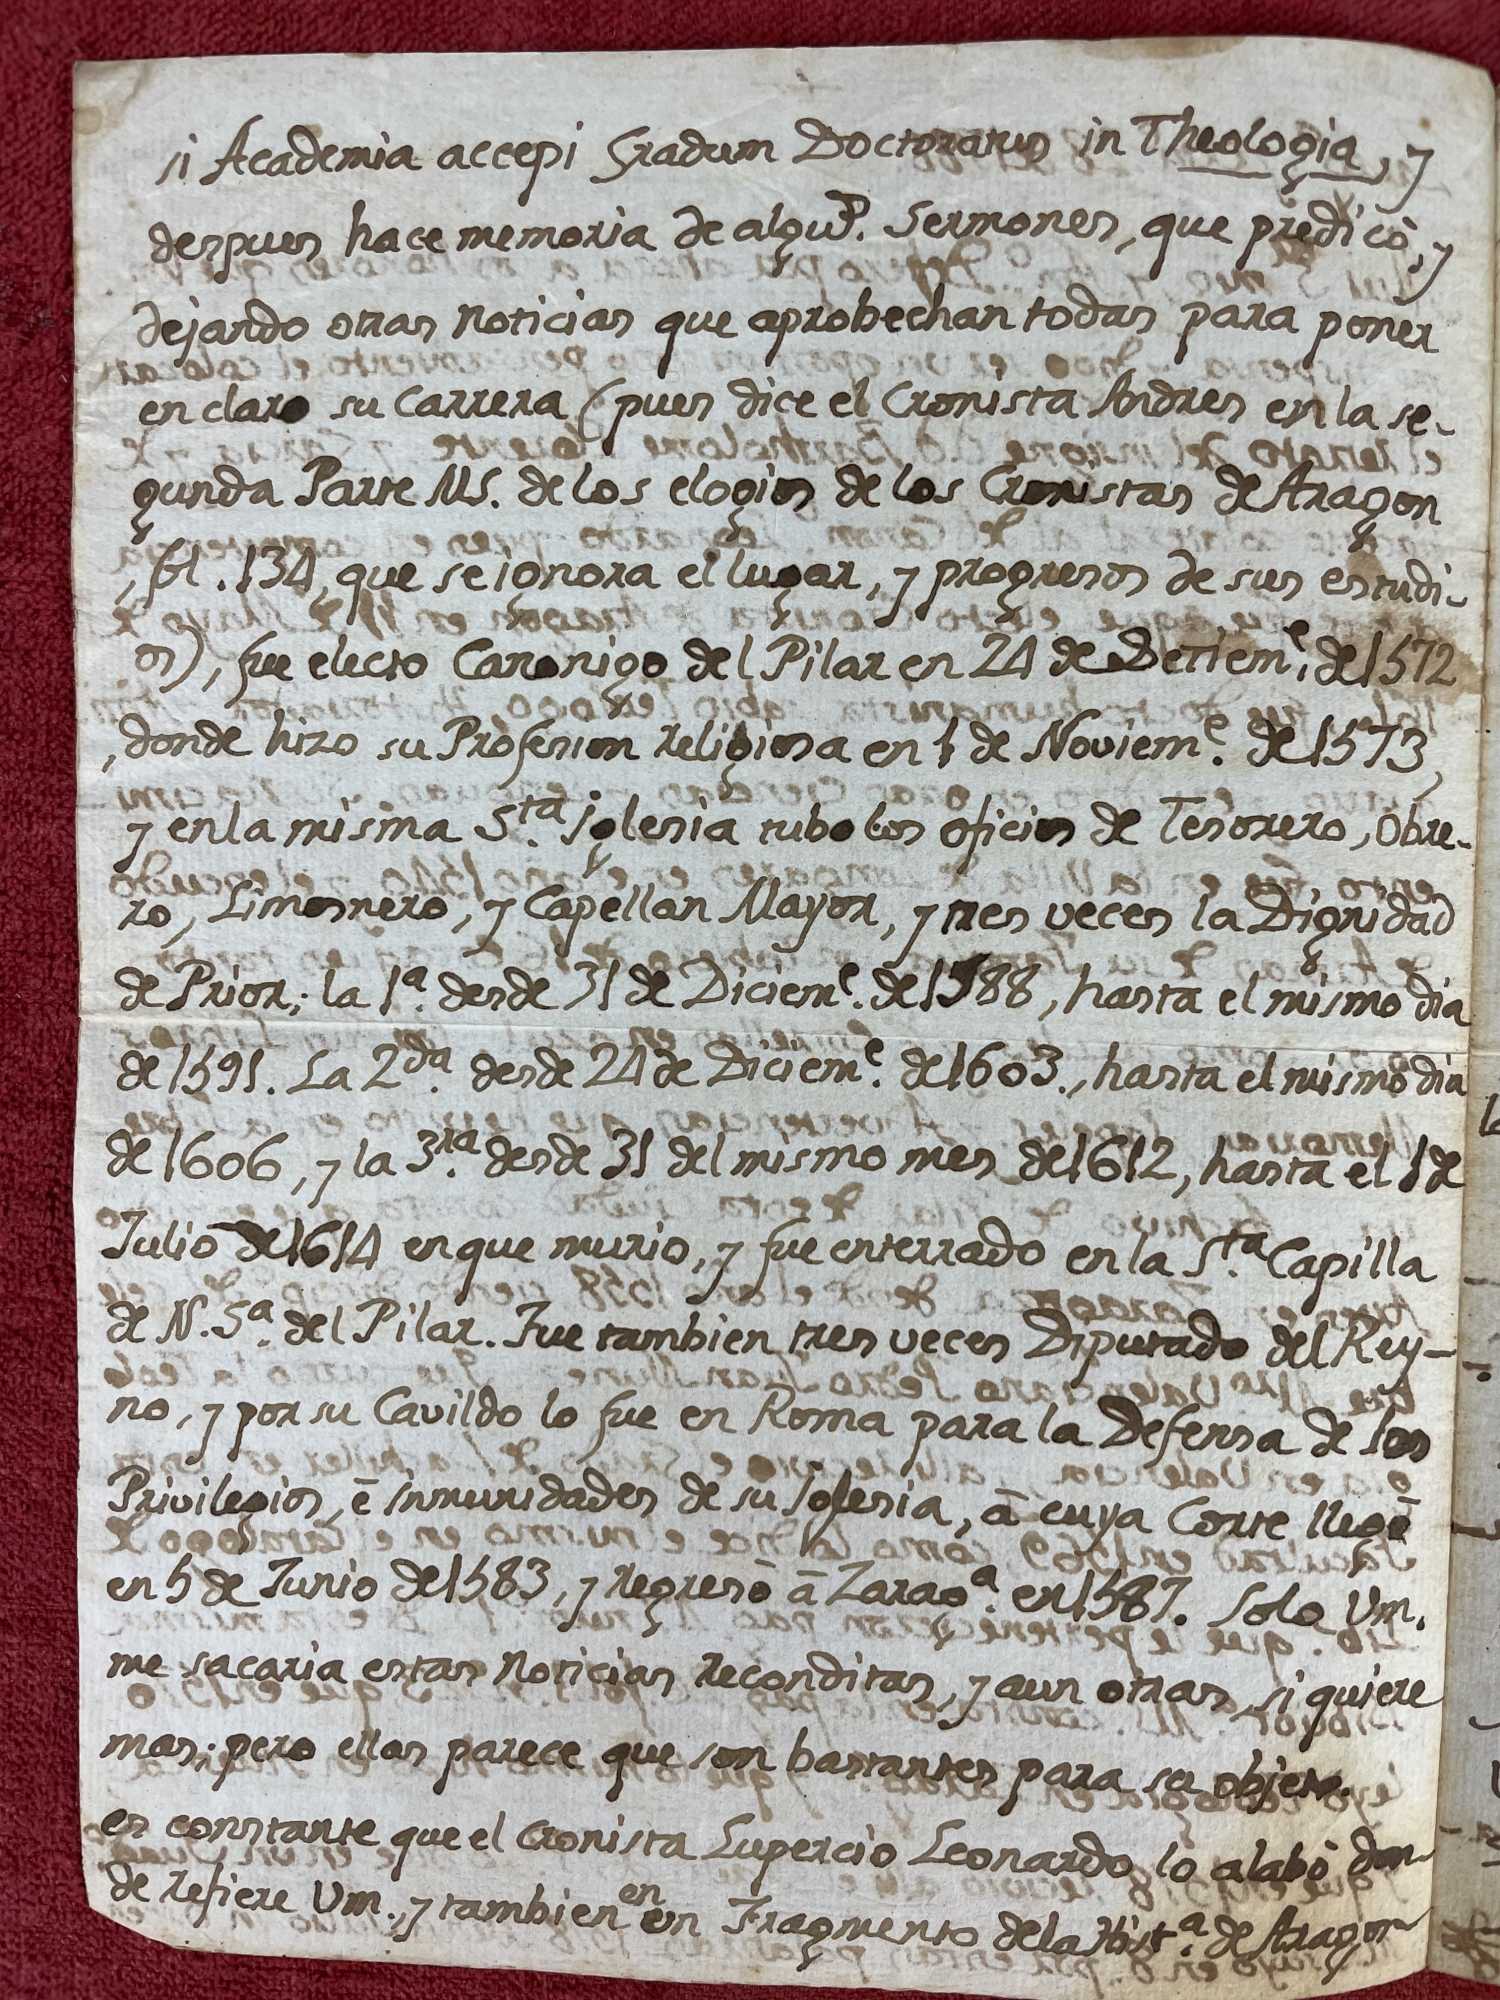 si Academia accepi Gradum Doctoratus in Theologia, y
despues hace memoria de algus. Sermones, que predicò, y
dejando otras noticias que aprobechan todas para poner
en claro su carrera (pues dice el Cronista Andres en la se-
gunda Parte MS. de los elogios de los Cronistas de Aragon
, fol. 134, que se ignora el lugar, y progresos de sus estudi-
os), fue electo Canonigo del Pilar en 24 de Setieme. de 1572
, donde hizo su Profesion religiosa en 1 de Novieme. de 1573,
y en la misma Sta. jglesia tubo los oficios de Tesorero, Obre-
ro, Limosnero, y Capellan Mayor, y tres veces la Dignidad
de Prior; la 1a. desde 31 de Dicieme. de 1588, hasta el mismo dia
de 1591. La 2da. desde 24 de Dicieme. de 1603., hasta el mismo dia
de 1606, y la 3ra. desde 31 del mismo mes de 1612, hasta el 1 de
Julio de 1614 en que murio, y fue enterrado en la Sta. Capilla
de N. Sa. del Pilar. Fue tambien tres veces Diputado del Rey-
no, y por su Cavildo lo fue en Roma para la Defensa de los
Privilegios, ē inmunidades de su Iglesia, ā cuya Corte llegō
en 5 de Junio de 1583, y regresō ā Zaraga. en 1587. Solo Vm.
me sacaria estas noticias reconditas, y aun otras, si quiere
mas; pero ellas parece que son bastantes para su objeto.
es constante que el Cronista Lupercio Leonardo lo alabó don-
de refiere Vm., y tambien en en Fragmento de la Hista. de Aragon